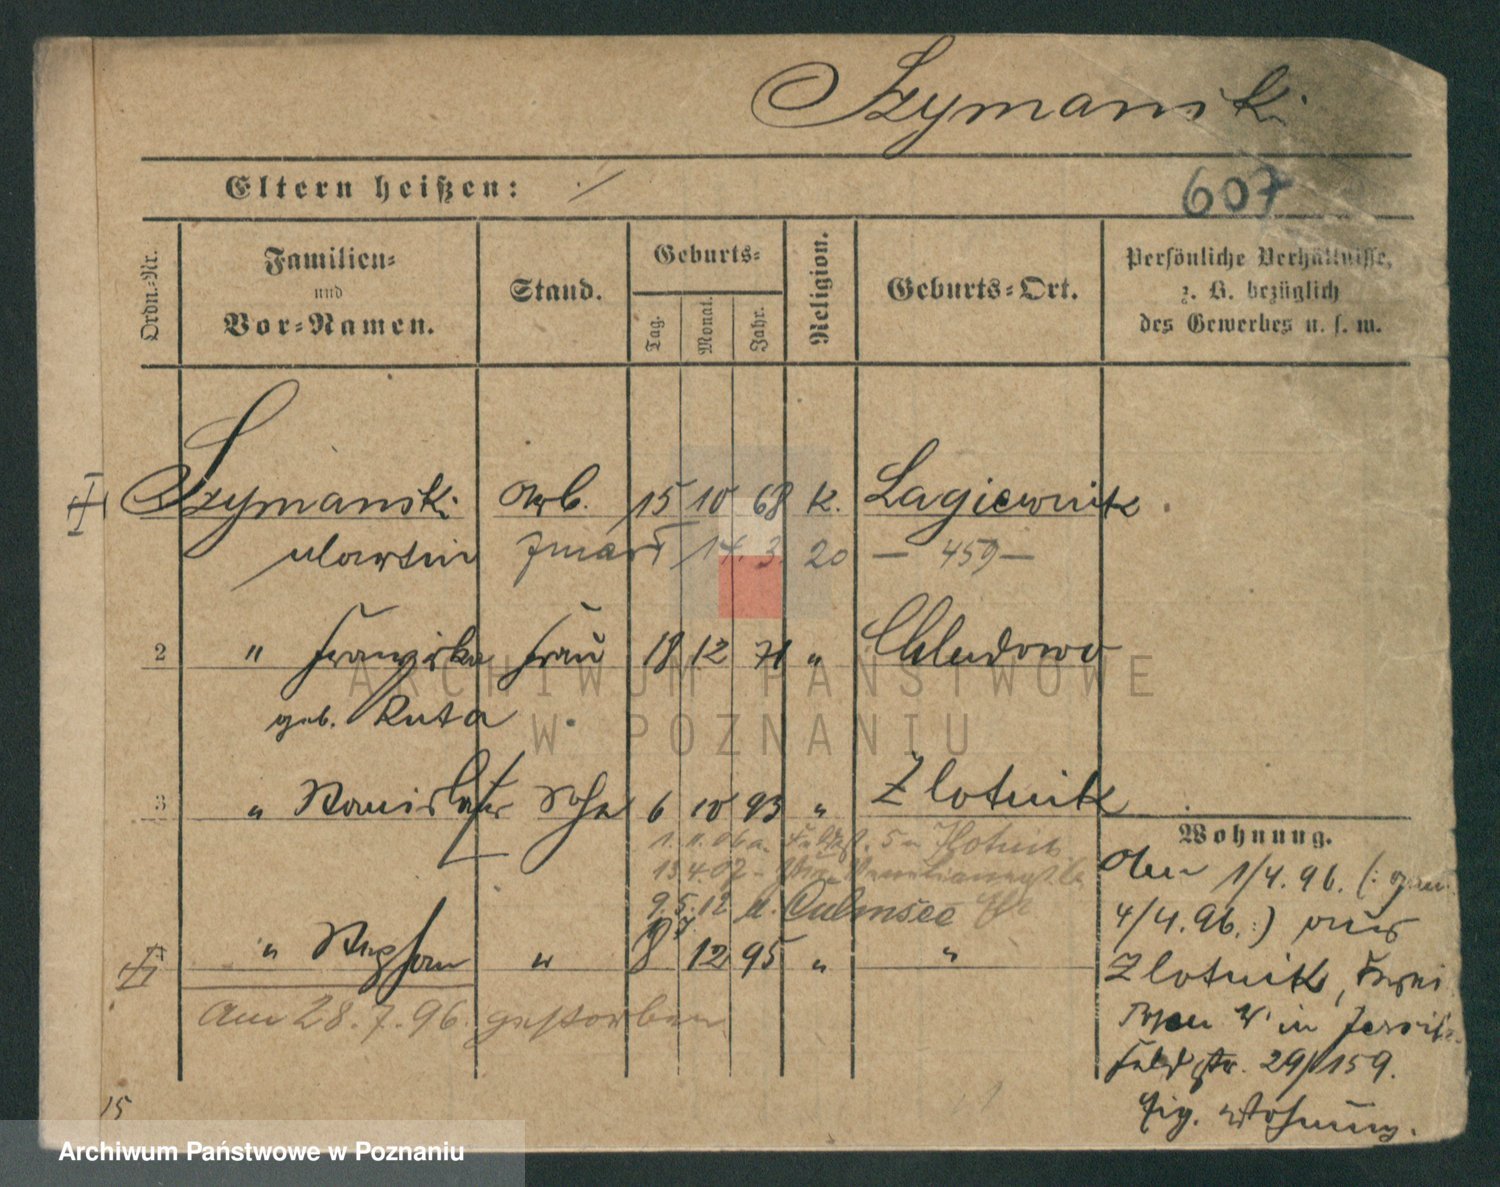 Szymanski
Eltern heißen:
607
Ordn.-Nr.
Familien- und Vor-Namen.
Stand.
Geburts-
Tag.
Monat.
Jahr.
Religion.
Geburts-Ort.
Persönliche Verhältnisse,
z. B. bezüglich
des Gewerbes u. s. w.
Szymanski Arb. 15 10 68 K. Lagiewnik
Martin 14. 3. 20 — 459 —
2 " Franziska Frau 18 12 71 " Chludowo
geb. Ruta
3 " Stanislaus Sohn 6 10 93 " Zlotnik
1. 11. 06 a. Zlotnik
13.4.07
9.5.12 n. Culmsee
" Stephan " 8 12 95 " "
Am 28.7.96 gestorben
Wohnung.
Am 1/4.96. (:
4/4.96.:) aus
Zlotnik, Kreis
Posen W in Jersitz
Feldstr. 29/159.
Eig. Wohnung.
15
ARCHIWUM PAŃSTWOWE
W POZNANIU
Archiwum Państwowe w Poznaniu